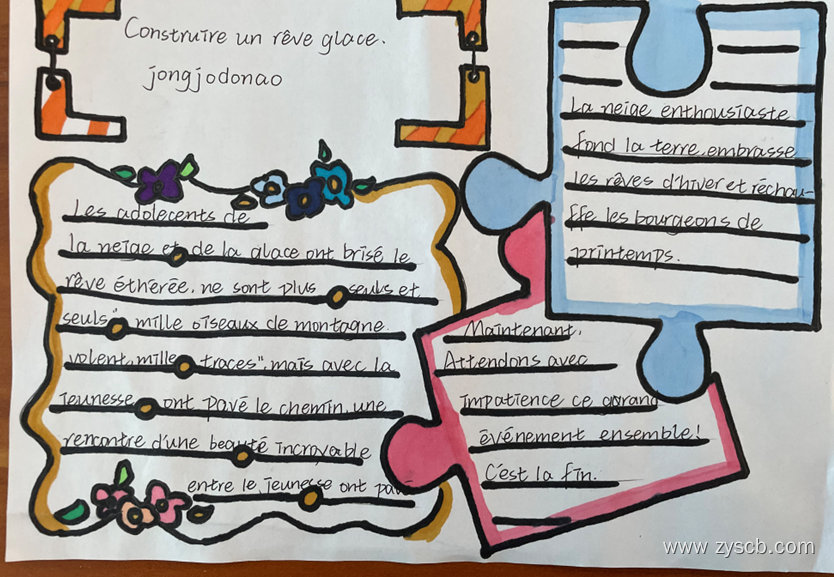 Construire un rêve glace.
jongjodonao
Les adolecents de
la neige et de la glace ont brisé le
rêve éthérée, ne sont plus seuls et
seuls" mille oiseaux de montagne.
volent, mille traces", mais avec la
jeunesse ont pavé le chemin, une
rencontre d'une beauté incroyable
entre le jeunesse ont pavé
La neige enthousiaste
fond la terre, embrasse
les rêves d'hiver et réchau-
ffe les bourgeons de
printemps.
Maintenant,
Attendons avec
impatience ce
événement ensemble!
C'est la fin.
www.zyscb.com